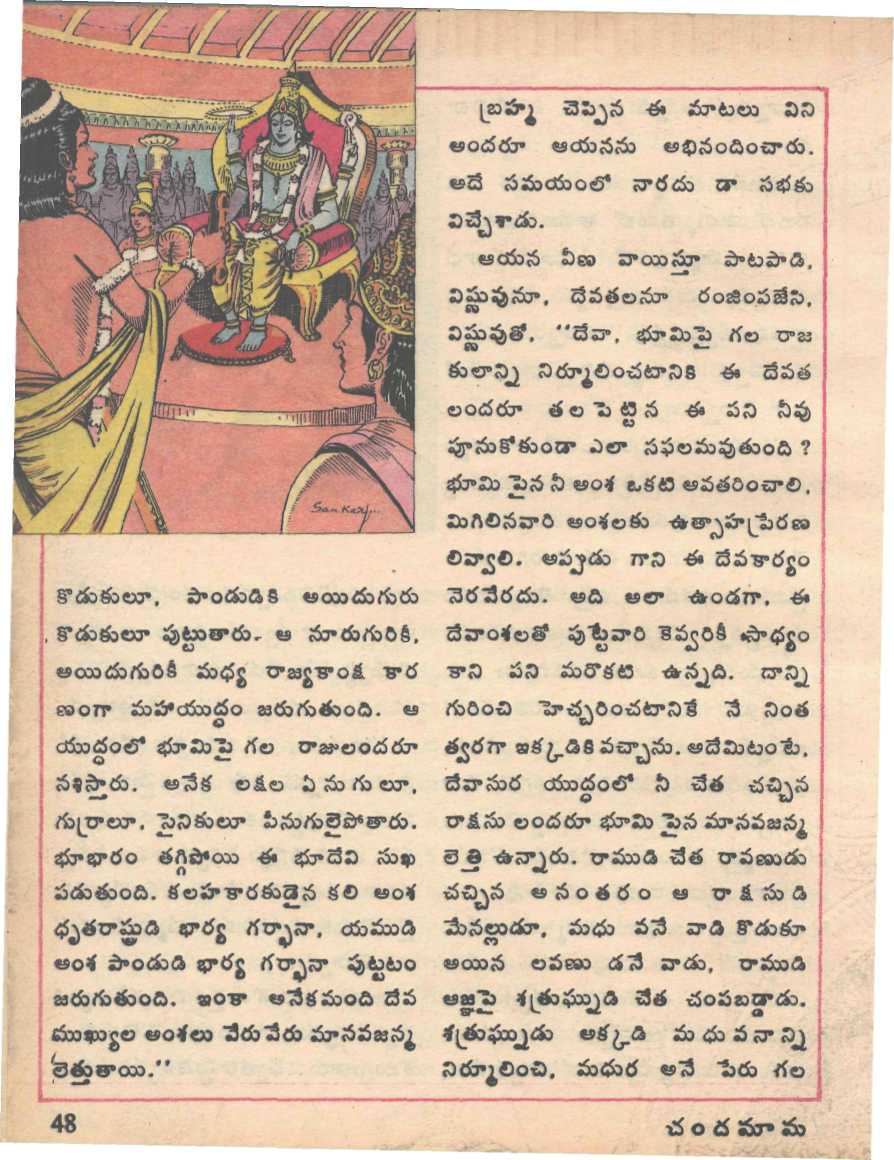 Sankar...
కొడుకులూ, పాండుడికి అయిదుగురు
కొడుకులూ పుట్టుతారు. ఆ నూరుగురికీ,
అయిదుగురికీ మధ్య రాజ్యకాంక్ష కార
ణంగా మహాయుద్ధం జరుగుతుంది. ఆ
యుద్ధంలో భూమిపై గల రాజులందరూ
నశిస్తారు. అనేక లక్షల ఏనుగులూ,
గుర్రాలూ, సైనికులూ పీనుగులైపోతారు.
భూభారం తగ్గిపోయి ఈ భూదేవి సుఖ
పడుతుంది. కలహకారకుడైన కలి అంశ
ధృతరాష్ట్రుడి భార్య గర్భానా, యముడి
అంశ పాండుడి భార్య గర్భానా పుట్టటం
జరుగుతుంది. ఇంకా అనేకమంది దేవ
ముఖ్యుల అంశలు వేరువేరు మానవజన్మ
లెత్తుతాయి.''
బ్రహ్మ చెప్పిన ఈ మాటలు విని
అందరూ ఆయనను అభినందించారు.
అదే సమయంలో నారదు డా సభకు
విచ్చేశాడు.
ఆయన వీణ వాయిస్తూ పాటపాడి,
విష్ణువునూ, దేవతలనూ రంజింపజేసి,
విష్ణువుతో, ''దేవా, భూమిపై గల రాజ
కులాన్ని నిర్మూలించటానికి ఈ దేవత
లందరూ తలపెట్టిన ఈ పని నీవు
పూనుకోకుండా ఎలా సఫలమవుతుంది?
భూమి పైన నీ అంశ ఒకటి అవతరించాలి,
మిగిలినవారి అంశలకు ఉత్సాహప్రేరణ
లివ్వాలి. అప్పుడు గాని ఈ దేవకార్యం
నెరవేరదు. అది అలా ఉండగా, ఈ
దేవాంశలతో పుట్టేవారి కెవ్వరికీ సాధ్యం
కాని పని మరొకటి ఉన్నది. దాన్ని
గురించి హెచ్చరించటానికే నే నింత
త్వరగా ఇక్కడికి వచ్చాను. అదేమిటంటే,
దేవాసుర యుద్ధంలో నీ చేత చచ్చిన
రాక్షసు లందరూ భూమి పైన మానవజన్మ
లెత్తి ఉన్నారు. రాముడి చేత రావణుడు
చచ్చిన అనంతరం ఆ రాక్షసుడి
మేనల్లుడూ, మధు వనే వాడి కొడుకూ
అయిన లవణు డనే వాడు, రాముడి
ఆజ్ఞపై శత్రుఘ్నుడి చేత చంపబడ్డాడు.
శత్రుఘ్నుడు అక్కడి మధువనాన్ని
నిర్మూలించి, మధుర అనే పేరు గల
48
చందమామ